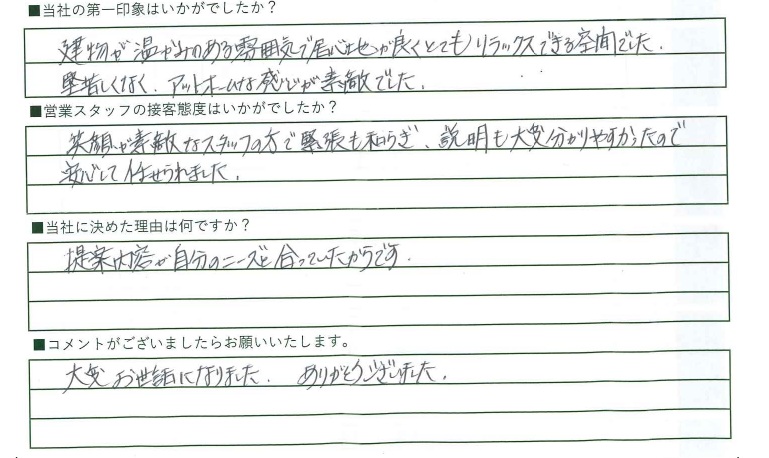 ■当社の第一印象はいかがでしたか？
建物が温かみのある雰囲気で居心地が良くとてもリラックスできる空間でした.
堅苦しくなく、アットホームな感じが素敵でした.
■営業スタッフの接客態度はいかがでしたか？
笑顔が素敵なスタッフの方で緊張も和らぎ、説明も大変分かりやすかったので
安心して任せられました.
■当社に決めた理由は何ですか？
提案内容が自分のニーズと合っていたからです.
■コメントがございましたらお願いいたします。
大変お世話になりました. ありがとうございました.